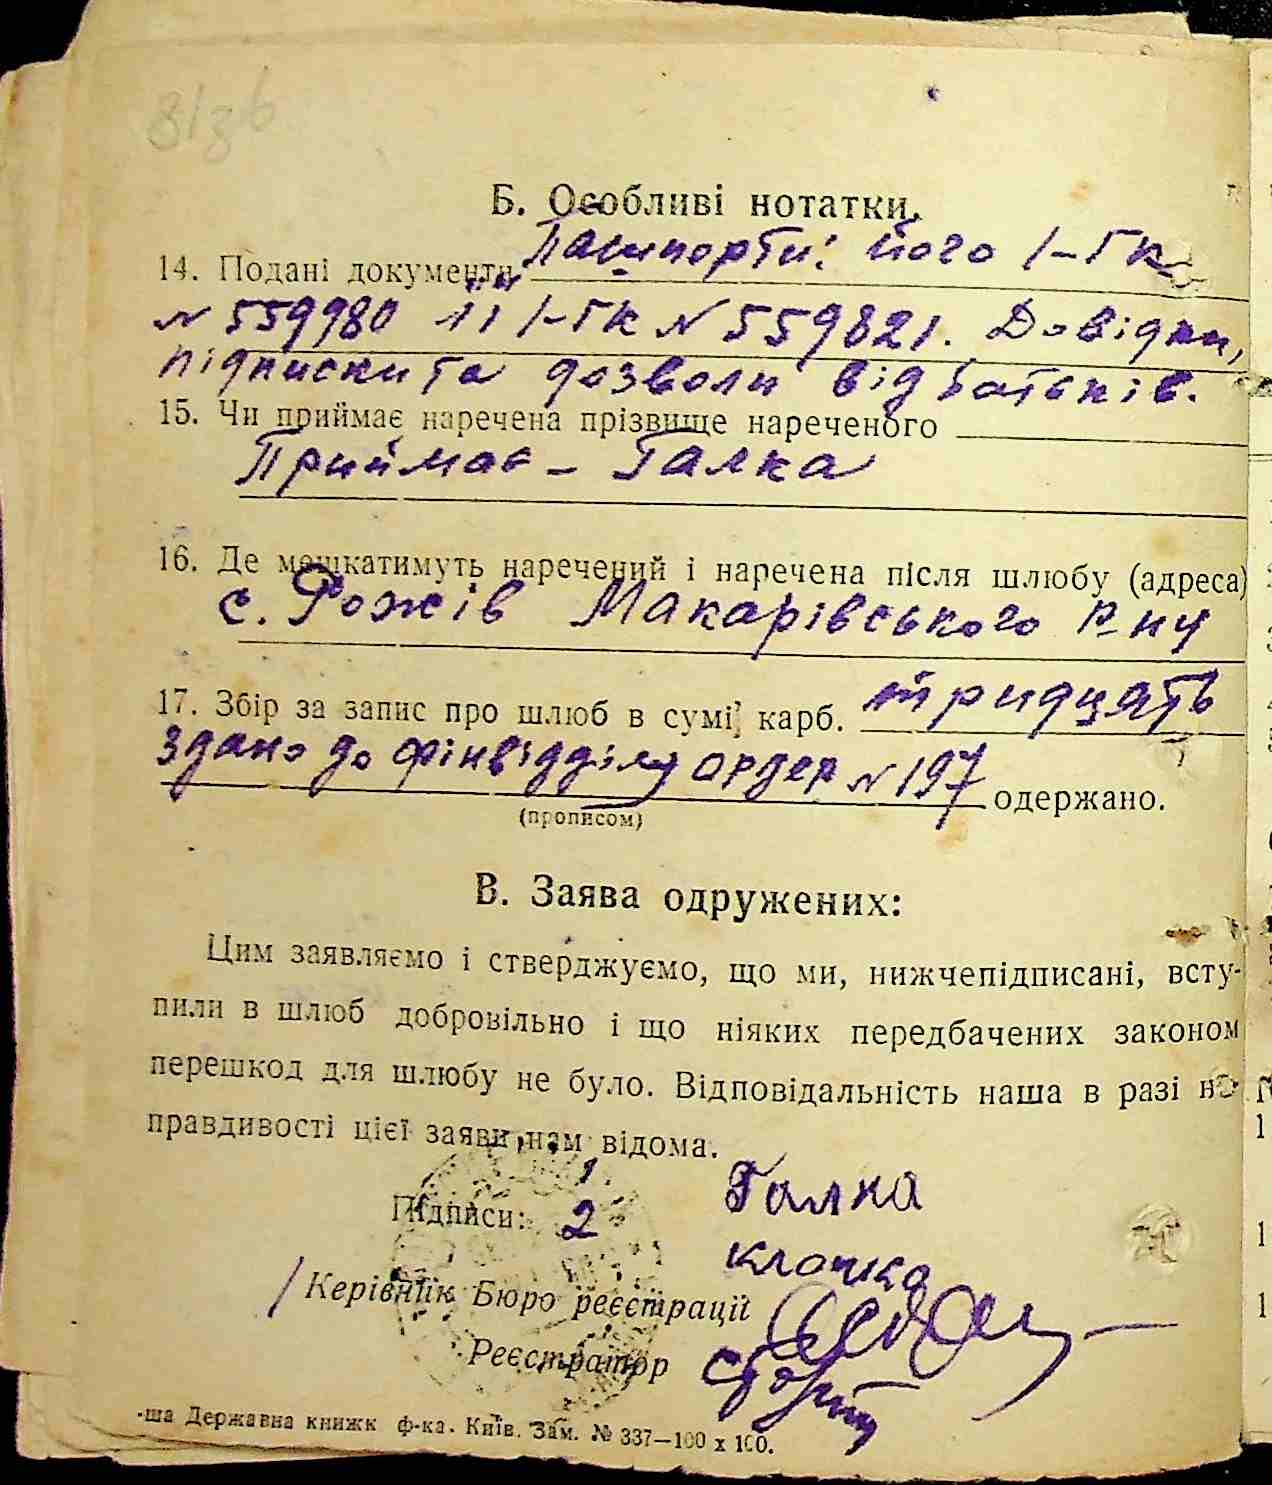 Б. Особливі нотатки.
14. Подані документи Пашпорти: його І-ГК
№ 559980 її І-ГК № 559821. Довідки,
підписки та дозволи від батьків.
15. Чи приймає наречена прізвище нареченого
Приймає – Галка
16. Де мешкатимуть наречений і наречена після шлюбу (адреса)
с. Рожів Макарівського р-ну
17. Збір за запис про шлюб в сумі карб. тридцять
здано до фінвідділу ордер № 197 одержано.
(прописом)
В. Заява одружених:
Цим заявляємо і стверджуємо, що ми, нижчепідписані, всту-
пили в шлюб добровільно і що ніяких передбачених законом
перешкод для шлюбу не було. Відповідальність наша в разі не-
правдивості цієї заяви нам відома.
1. Галка
Підписи: 2 Клочка
Керівник Бюро реєстрації
Реєстратор
-ша Державна книжк ф-ка. Київ. Зам. № 337—100 х 100.